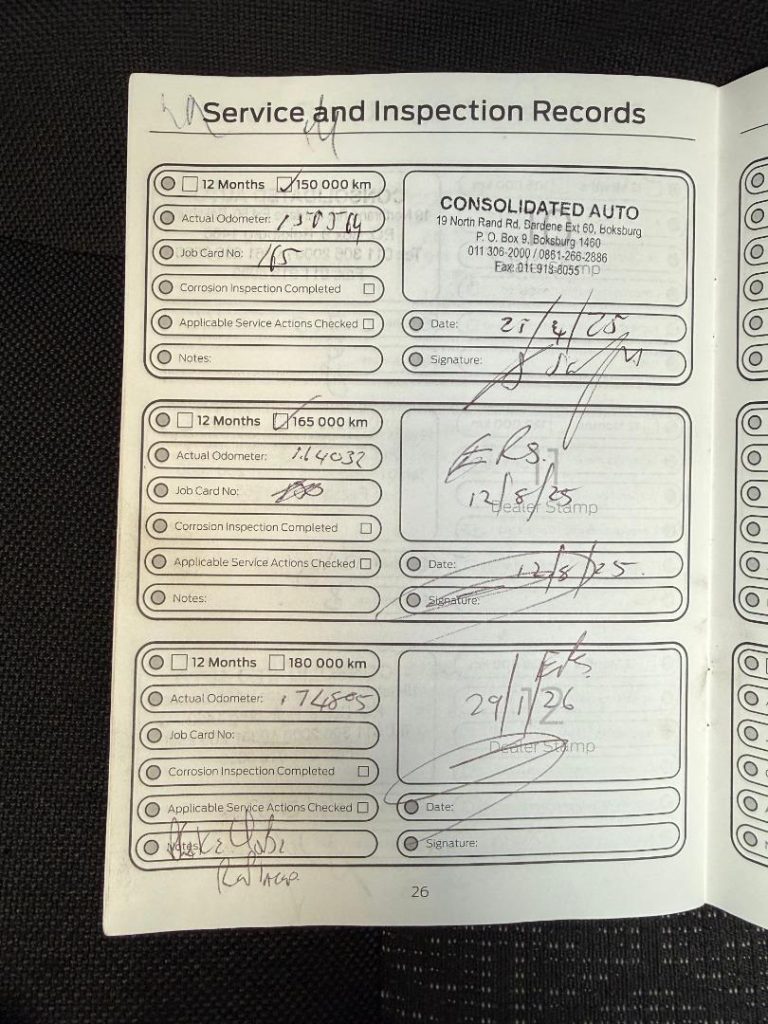 Service and Inspection Records
12 Months 150 000 km
Actual Odometer:
Job Card No: 165
Corrosion Inspection Completed
Applicable Service Actions Checked
Notes:
CONSOLIDATED AUTO
19 North Rand Rd, Bardene Ext 60, Boksburg
P. O. Box 9, Boksburg 1460
011 306-2000 / 0861-266-2886
Fax: 011 918-6055
Date: 25/4/25
Signature:
12 Months 165 000 km
Actual Odometer: 164032
Job Card No:
Corrosion Inspection Completed
Applicable Service Actions Checked
Notes:
ERS.
12/8/25
11
Dealer Stamp
Date: 12/8/25.
Signature:
12 Months 180 000 km
Actual Odometer: 174805
Job Card No:
Corrosion Inspection Completed
Applicable Service Actions Checked
Notes:
ERS.
29/1/26
12
Dealer Stamp
Date:
Signature:
26